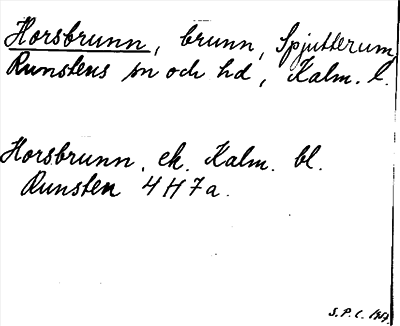 Horsbrunn, brunn, Spjutterum,
Runstens sn och hd, Kalm. l.
Horsbrunn. ek. Kalm. bl.
Runsten 4H7a.
S.P.C.